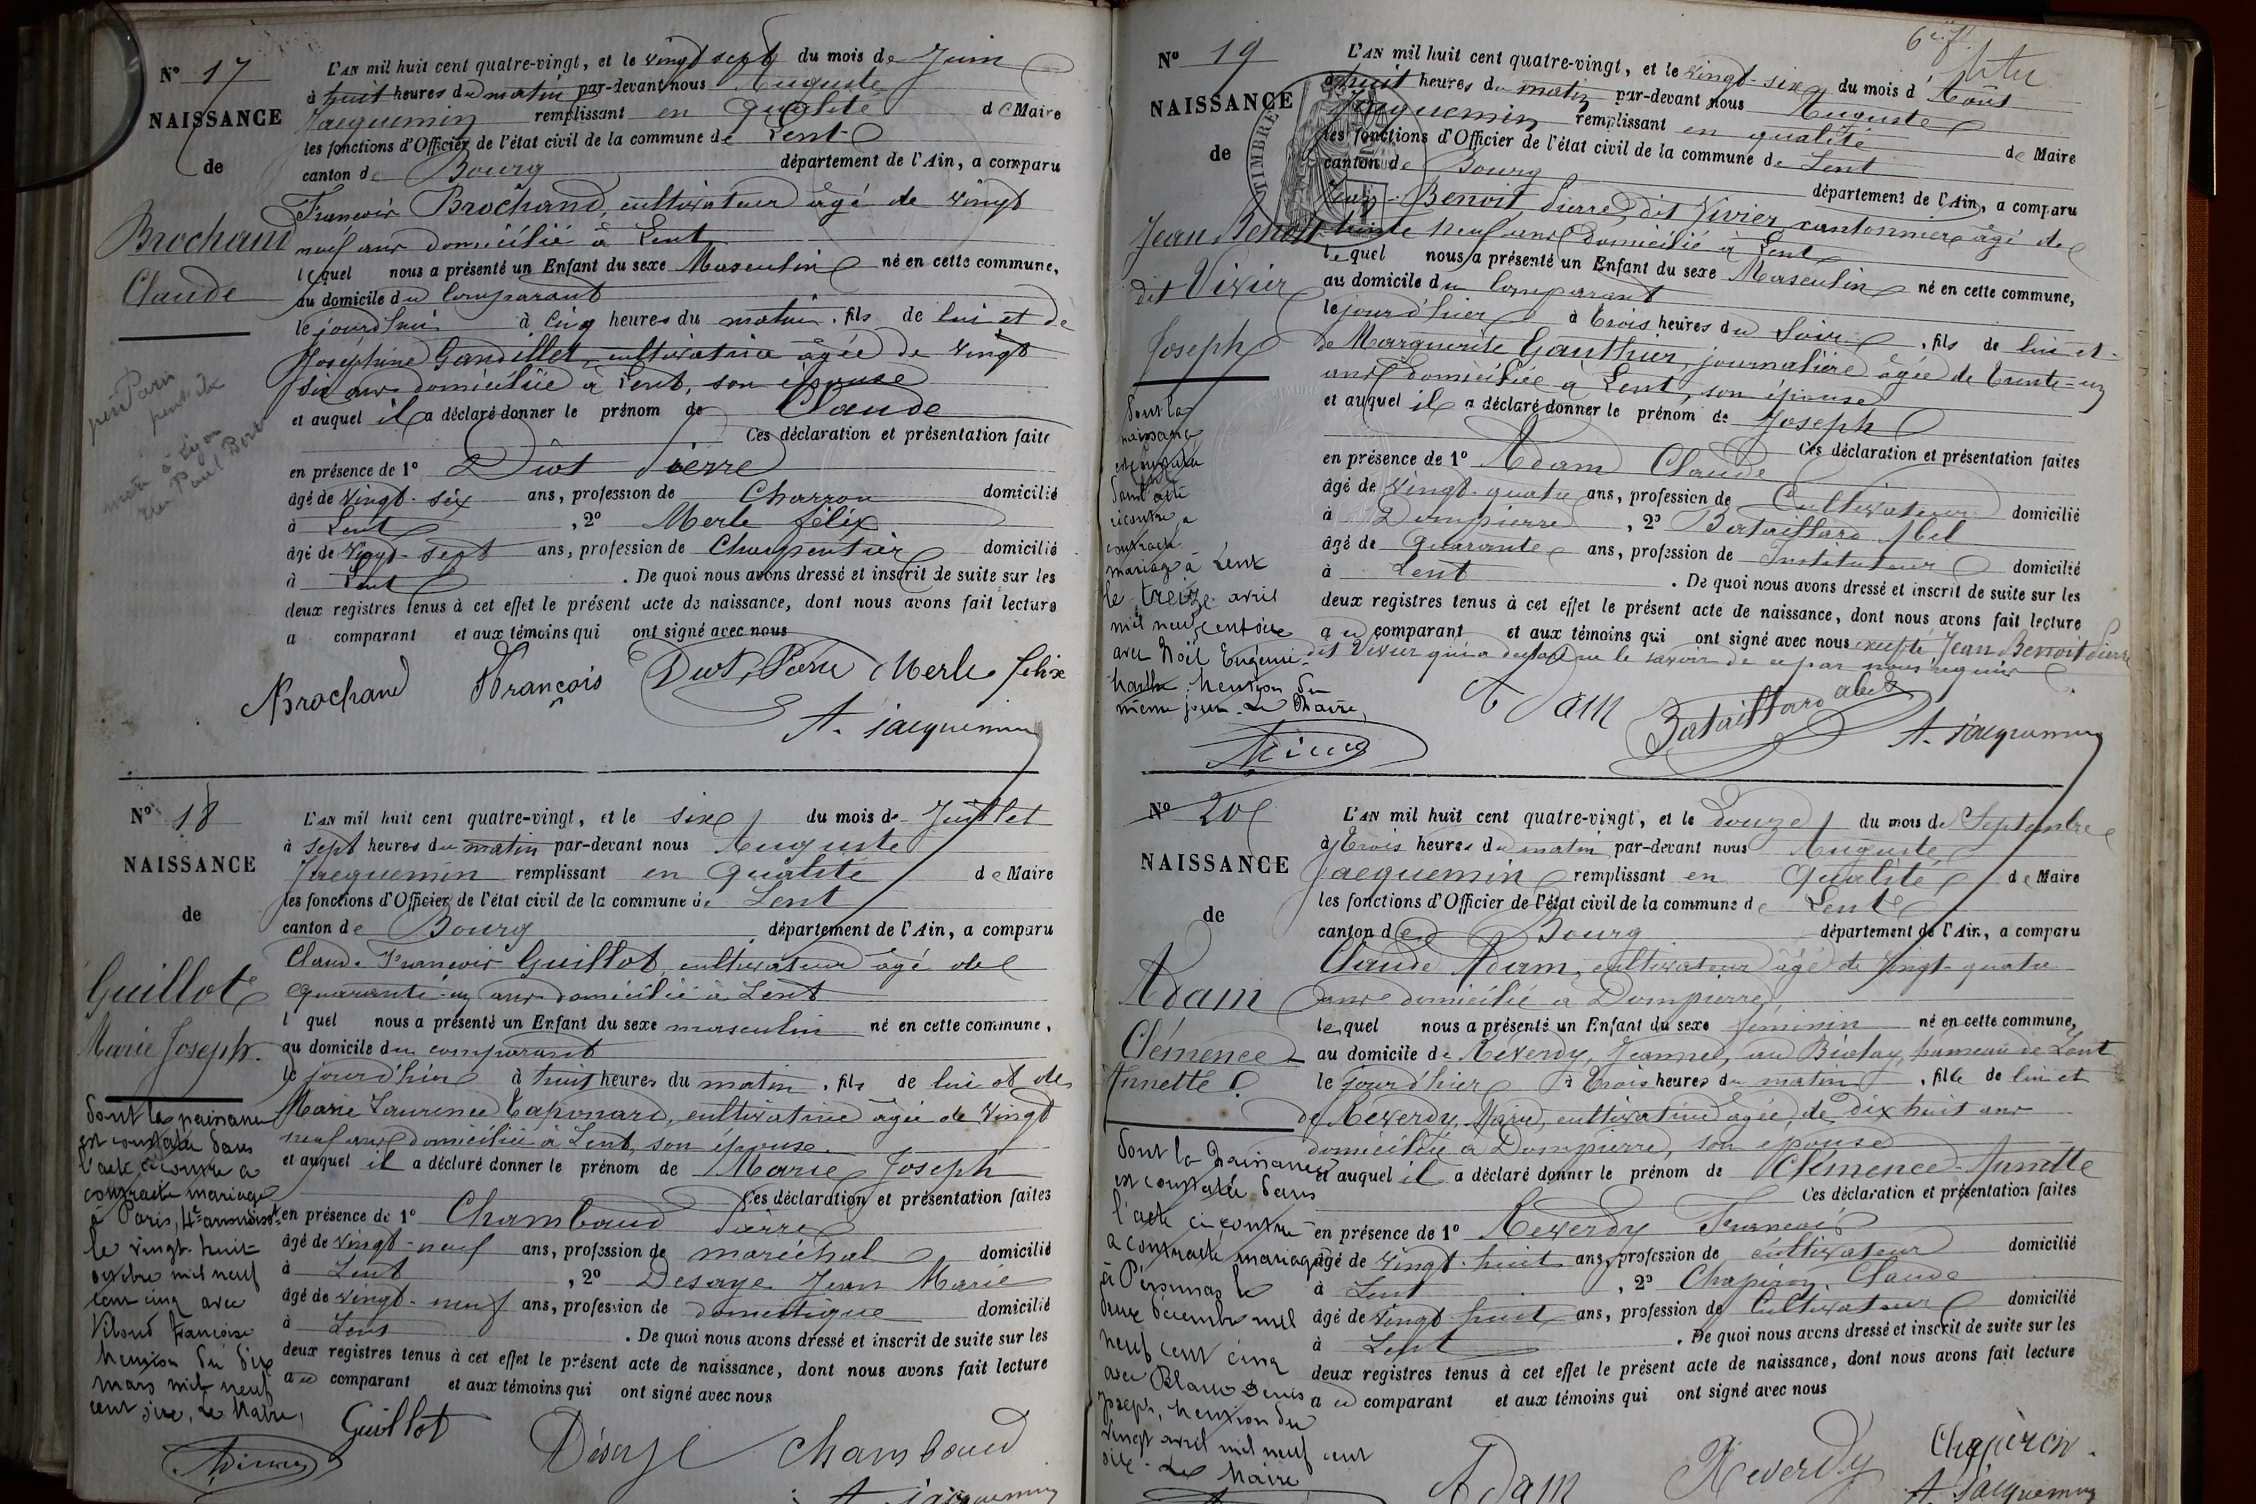 N° 17
NAISSANCE
de
Brochand
Claude
L'AN mil huit cent quatre-vingt, et le vingt sept du mois de Juin
à huit heures du matin par-devant nous Auguste
Jacquemin remplissant en qualité de Maire
les fonctions d'Officier de l'état civil de la commune de Lent
canton de Bourg département de l'Ain, a comparu
François Brochand, cultivateur âgé de vingt
neuf ans domicilié à Lent
lequel nous a présenté un Enfant du sexe Masculin né en cette commune,
au domicile du comparant
le jourd'hui à cinq heures du matin, fils de lui et de
Joséphine Gandillet, cultivatrice âgée de vingt
six ans domiciliée à Lent, son épouse
et auquel il a déclaré donner le prénom de Claude
Ces déclaration et présentation faite
en présence de 1° Diot Pierre
âgé de vingt-six ans, profession de Charron domicilié
à Lent, 2° Merle félix
âgé de vingt-sept ans, profession de Charpentier domicilié
à Lent. De quoi nous avons dressé et inscrit de suite sur les
deux registres tenus à cet effet le présent acte de naissance, dont nous avons fait lecture
a comparant et aux témoins qui ont signé avec nous
Brochand François Diot Pierre Merle félix
A. Jacquemin
N° 18
NAISSANCE
de
Guillot
Marie Joseph.
dont la naissance
est constatée dans
l'acte ci-contre a
contracté mariage
à Paris, 4e arrondisst
le vingt-huit
octobre mil neuf
cent cinq avec
Françoise
Mention du dix
mars mil neuf
cent six, Le Maire,
L'AN mil huit cent quatre-vingt, et le six du mois de Juillet
à sept heures du matin par-devant nous Auguste
Jacquemin remplissant en qualité de Maire
les fonctions d'Officier de l'état civil de la commune de Lent
canton de Bourg département de l'Ain, a comparu
Claude François Guillot, cultivateur âgé de
quarante-un ans domicilié à Lent
l quel nous a présenté un Enfant du sexe masculin né en cette commune,
au domicile du comparant
le jourd'hier à huit heures du matin, fils de lui et de
Marie Laurence Taponard, cultivatrice âgée de vingt
neuf ans domiciliée à Lent, son épouse
et auquel il a déclaré donner le prénom de Marie Joseph
Ces déclaration et présentation faites
en présence de 1° Chambaud Pierre
âgé de vingt-neuf ans, profession de maréchal domicilié
à Lent, 2° Desaye Jean Marie
âgé de vingt-neuf ans, profession de domestique domicilié
à Lent. De quoi nous avons dressé et inscrit de suite sur les
deux registres tenus à cet effet le présent acte de naissance, dont nous avons fait lecture
au comparant et aux témoins qui ont signé avec nous
Guillot Désaye Chambaud
A. Jacquemin
N° 19
NAISSANCE
de
Jean Benoit
dit Vivier
Joseph
dont la
naissance
est constatée
dans acte
ci contre a
contracté
mariage à Lent
le treize avril
mil neuf cent six
avec Noël Eugénie
Mention du
même jour. Le Maire,
TIMBRE
L'AN mil huit cent quatre-vingt, et le vingt-six du mois d'Août
à huit heures du matin par-devant nous Auguste
Jacquemin remplissant en qualité de Maire
les fonctions d'Officier de l'état civil de la commune de Lent
canton de Bourg département de l'Ain, a comparu
Jean-Benoit Pierre, dit Vivier, cantonnier âgé de
trente neuf ans domicilié à Lent
lequel nous a présenté un Enfant du sexe Masculin né en cette commune,
au domicile du comparant
le jourd'hier à trois heures du Soir, fils de lui et
de Marguerite Gauthier, journalière âgée de trente-un
ans domiciliée à Lent, son épouse
et auquel il a déclaré donner le prénom de Joseph
Ces déclaration et présentation faites
en présence de 1° Adam Claude
âgé de vingt-quatre ans, profession de Cultivateur domicilié
à Dompierre, 2° Bataillard Abel
âgé de quarante ans, profession de Instituteur domicilié
à Lent. De quoi nous avons dressé et inscrit de suite sur les
deux registres tenus à cet effet le présent acte de naissance, dont nous avons fait lecture
au comparant et aux témoins qui ont signé avec nous excepté Jean Benoit Pierre
dit Vivier qui a déclaré ne le savoir de ce par nous requis
Adam Bataillard abel
A. Jacquemin
N° 20
NAISSANCE
de
Adam
Clémence
Annette
dont la naissance
est constatée dans
l'acte ci-contre
a contracté mariage
à Péronnas le
deux décembre mil
neuf cent cinq
avec Blanc Denis
Joseph, Mention du
vingt avril mil neuf cent
six. Le Maire
L'AN mil huit cent quatre-vingt, et le Douze du mois de Septembre
à trois heures du matin par-devant nous Auguste
Jacquemin remplissant en qualité de Maire
les fonctions d'Officier de l'état civil de la commune de Lent
canton de Bourg département de l'Ain, a comparu
Claude Adam, cultivateur âgé de vingt-quatre
ans domicilié à Dompierre,
lequel nous a présenté un Enfant du sexe féminin né en cette commune,
au domicile de Réverdy, Jeannet, au Biolay, hameau de Lent
le jourd'hier à trois heures du matin, fille de lui et
de Réverdy, Marie, cultivatrice âgée de dix huit ans
domiciliée à Dompierre, son épouse
et auquel il a déclaré donner le prénom de Clémence-Annette
Ces déclaration et présentation faites
en présence de 1° Réverdy François
âgé de vingt-huit ans, profession de cultivateur domicilié
à Lent, 2° Chapiron, Claude
âgé de vingt-huit ans, profession de Cultivateur domicilié
à Lent. De quoi nous avons dressé et inscrit de suite sur les
deux registres tenus à cet effet le présent acte de naissance, dont nous avons fait lecture
au comparant et aux témoins qui ont signé avec nous
Adam Reverdy Chapiron
A. Jacquemin